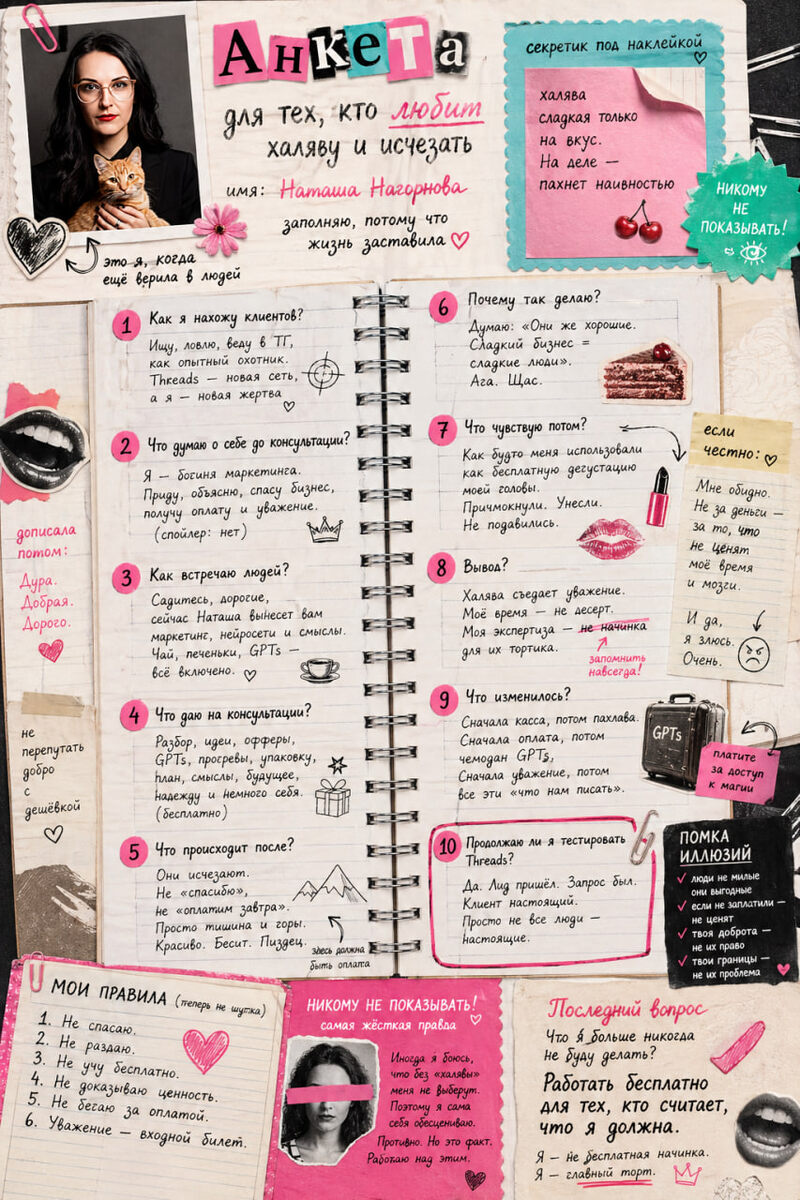 Анкета
для тех, кто любит
халяву и исчезать
имя: Наташа Нагорнова
заполняю, потому что
жизнь заставила
это я, когда
ещё верила в людей
секретик под наклейкой
халява
сладкая только
на вкус.
На деле —
пахнет наивностью
НИКОМУ
НЕ
ПОКАЗЫВАТЬ!
1 Как я нахожу клиентов?
Ищу, ловлю, веду в ТГ,
как опытный охотник.
Threads — новая сеть,
а я — новая жертва
2 Что думаю о себе до консультации?
Я — богиня маркетинга.
Приду, объясню, спасу бизнес,
получу оплату и уважение.
(спойлер: нет)
3 Как встречаю людей?
Садитесь, дорогие,
сейчас Наташа вынесет вам
маркетинг, нейросети и смыслы.
Чай, печеньки, GPTs —
всё включено.
4 Что даю на консультации?
Разбор, идеи, офферы,
GPTs, прогревы, упаковку,
план, смыслы, будущее,
надежду и немного себя.
(бесплатно)
5 Что происходит после?
Они исчезают.
Не «спасибо»,
не «оплатим завтра».
Просто тишина и горы.
Красиво. Бесит. Пиздец.
здесь должна
быть оплата
дописала
потом:
Дура.
Добрая.
Дорого.
не
перепутать
добро
с
дешёвкой
6 Почему так делаю?
Думаю: «Они же хорошие.
Сладкий бизнес =
сладкие люди».
Ага. Щас.
7 Что чувствую потом?
Как будто меня использовали
как бесплатную дегустацию
моей головы.
Причмокнули. Унесли.
Не подавились.
8 Вывод?
Халява съедает уважение.
Моё время — не десерт.
Моя экспертиза — не начинка
для их тортика.
запомнить
навсегда!
9 Что изменилось?
Сначала касса, потом пахлава.
Сначала оплата, потом
чемодан GPTs,
Сначала уважение, потом
все эти «что нам писать».
GPTs
платите
за доступ
к магии
10 Продолжаю ли я тестировать
Threads?
Да. Лид пришёл. Запрос был.
Клиент настоящий.
Просто не все люди —
настоящие.
если
честно:
Мне обидно.
Не за деньги —
за то, что
не ценят
моё время
и мозги.
И да,
я злюсь.
Очень.
ПОМКА
ИЛЛЮЗИЙ
люди не милые
они выгодные
если не заплатили —
не ценят
твоя доброта —
не их право
твои границы —
не их проблема
МОИ ПРАВИЛА (теперь не шутка)
1. Не спасаю.
2. Не раздаю.
3. Не учу бесплатно.
4. Не доказываю ценность.
5. Не бегаю за оплатой.
6. Уважение — входной билет.
НИКОМУ НЕ ПОКАЗЫВАТЬ!
самая жёсткая правда
Иногда я боюсь,
что без «халявы»
меня не выберут.
Поэтому я сама
себя обесцениваю.
Противно. Но это факт.
Работаю над этим.
Последний вопрос
Что я больше никогда
не буду делать?
Работать бесплатно
для тех, кто считает,
что я должна.
Я — не бесплатная начинка.
Я — главный торт.